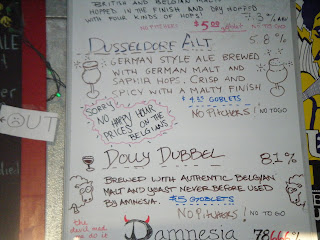 BRITISH AND BELGIAN MALTS
HOPPED IN THE FINISH AND DRY HOPPED
WITH FOUR KINDS OF HOPS!
HAPPYHOUR! $5.00
DUSSELDORF ALT 5.8%
GERMAN STYLE ALE BREWED
WITH GERMAN MALT AND
SAPHIR HOPS. CRISP AND
SPICY WITH A MALTY FINISH
$4.50 GOBLETS
NO PITCHERS! NO TO GO
SORRY
NO HAPPY HOUR
PRICES ON THE
BELGIANS
OUT
DOLLY DUBBEL 8.1%
BREWED WITH AUTHENTIC BELGIAN
MALT AND YEAST NEVER BEFORE USED
BY AMNESIA.
$5 GOBLETS
NO PITCHERS! NO TO GO
the devil made
me do it
Damnesia